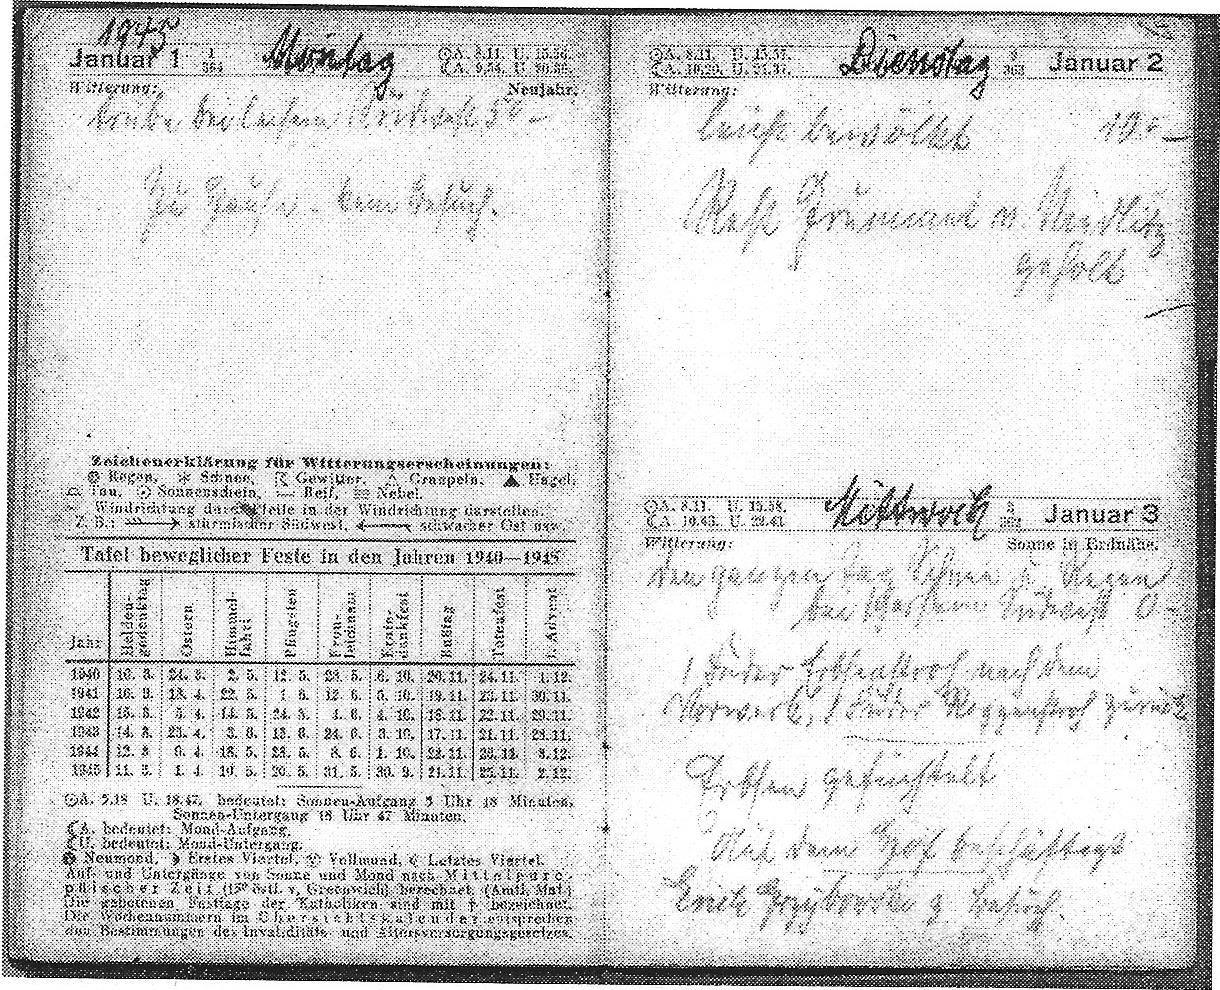 1945
Januar 1 1/364 Montag ☉A. 8.11. U. 15.56.
☾A. 9.34. U. 20.30.
Witterung: Neujahr.
trübe bei leisem Südwest 5° –
Zu Hause – kein Besuch.
Zeichenerklärung für Witterungserscheinungen:
Regen, Schnee, Gewitter, Graupeln, Hagel,
Tau, Sonnenschein, Reif, Nebel.
Windrichtung durch Pfeile in der Windrichtung darstellen.
Z. B.: stürmischer Südwest, schwacher Ost usw.
Tafel beweglicher Feste in den Jahren 1940—1945
Jahr Helden-gedenktag Ostern Himmel-fahrt Pfingsten Fron-leichnam Ernte-dankfest Bußtag Totenfest 1. Advent
1940 10. 3. 24. 3. 2. 5. 12. 5. 23. 5. 6. 10. 20. 11. 24. 11. 1. 12.
1941 16. 3. 13. 4. 22. 5. 1. 6. 12. 6. 5. 10. 19. 11. 23. 11. 30. 11.
1942 15. 3. 5. 4. 14. 5. 24. 5. 4. 6. 4. 10. 18. 11. 22. 11. 29. 11.
1943 14. 3. 25. 4. 3. 6. 13. 6. 24. 6. 3. 10. 17. 11. 21. 11. 28. 11.
1944 12. 3. 9. 4. 18. 5. 28. 5. 8. 6. 1. 10. 22. 11. 26. 11. 3. 12.
1945 11. 3. 1. 4. 10. 5. 20. 5. 31. 5. 30. 9. 21. 11. 25. 11. 2. 12.
☉A. 5.18 U. 18.47. bedeutet: Sonnen-Aufgang 5 Uhr 18 Minuten,
Sonnen-Untergang 18 Uhr 47 Minuten.
☾A. bedeutet: Mond-Aufgang.
☾U. bedeutet: Mond-Untergang.
Neumond, Erstes Viertel, Vollmond, Letztes Viertel.
Auf- und Untergänge von Sonne und Mond nach Mitteleuro-
päischer Zeit (15° östl. v. Greenwich) berechnet. (Amtl. Mat.)
Die gebotenen Festtage der Katholiken sind mit † bezeichnet.
Die Wochennummern im Übersichtskalender entsprechen
den Bestimmungen des Invaliditäts- und Altersversorgungsgesetzes.
☉A. 8.11. U. 15.57.
☾A. 10.20. U. 21.37. Dienstag 2/363 Januar 2
Witterung:
leicht bewölkt 10° –
Rest Grummet v. Neidlitz
geholt
☉A. 8.11. U. 15.58.
☾A. 10.43. U. 22.41. Mittwoch 3/362 Januar 3
Witterung: Sonne in Erdnähe.
den ganzen Tag Schnee u. Regen
bei scharfem Südwest 0 –
1 Fuder Erbsenstroh nach dem
Vorwerk, 1 Fuder Roggenstroh zurück
Erbsen
Auf dem Hof beschäftigt
Erich Grzybowski z. Besuch.